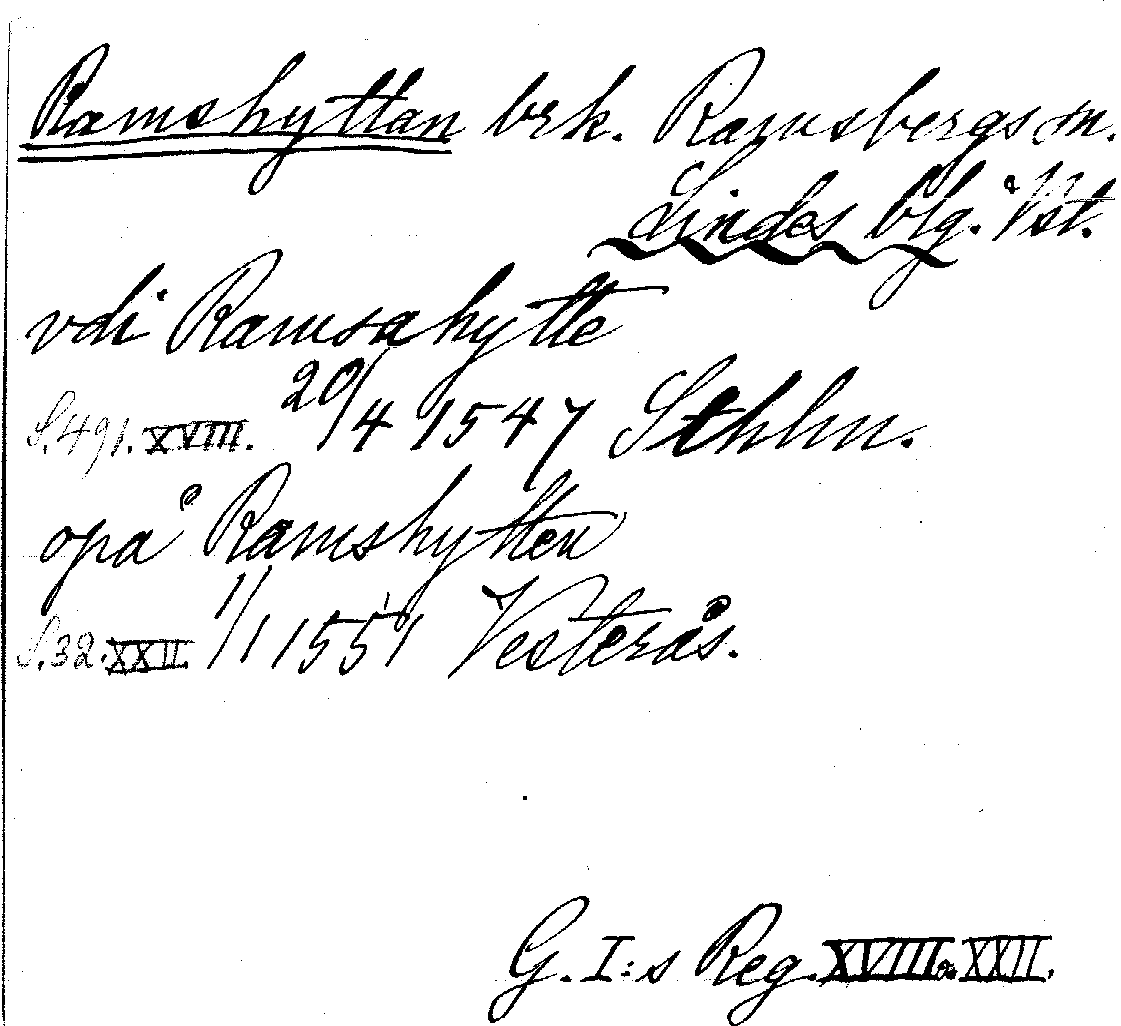 Ramshyttan brk. Ramsbergs sn.
Lindes blg. Vst.
vdi Ramsahytte
S. 491. XVIII. 20/4 1547 Sthlm.
opå Ramshytten
S. 32. XXII. 1/1 1551 Vesterås.
G. I:s Reg. XVIII. o. XXII.